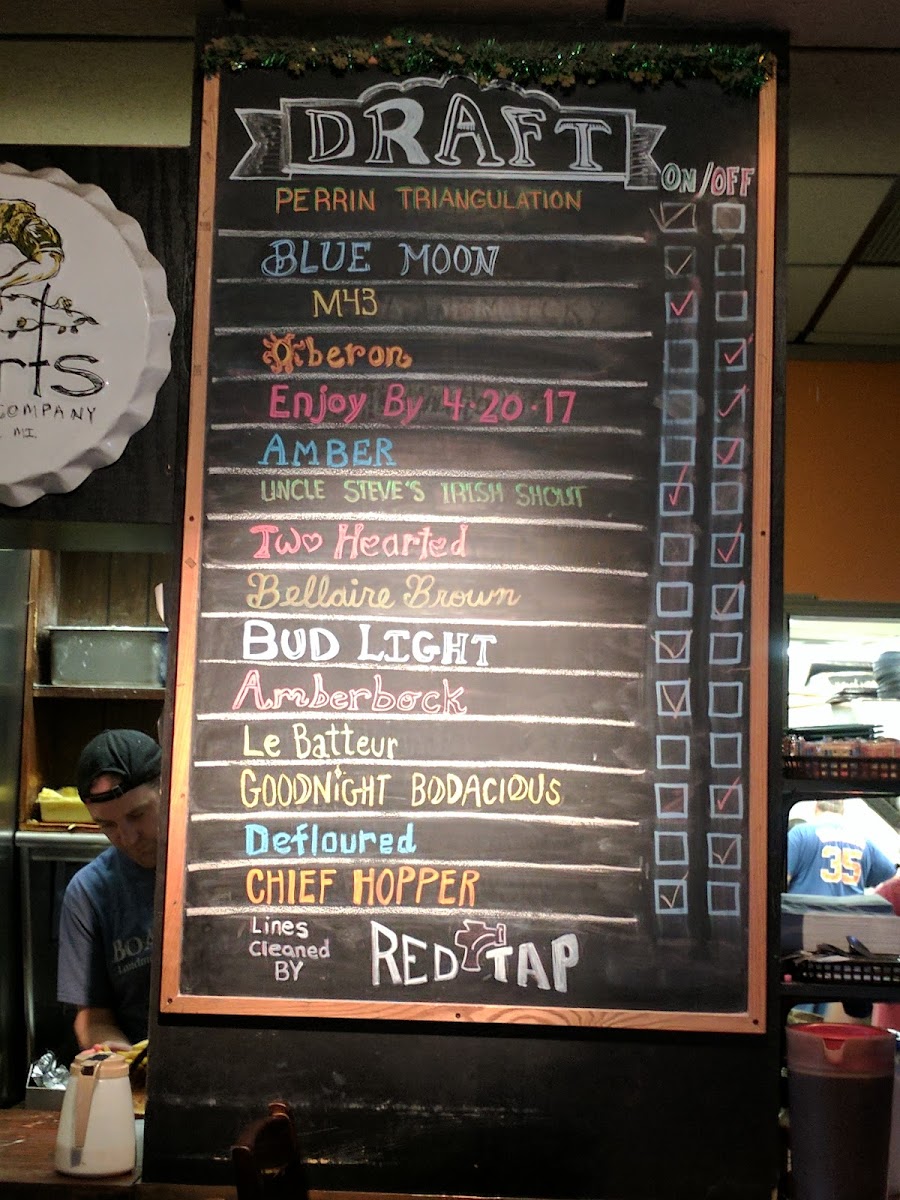 DRAFT
ON/OFF
PERRIN TRIANGULATION
BLUE MOON
M43
Oberon
Enjoy By 4·20·17
AMBER
UNCLE STEVE'S IRISH SHOUT
Two Hearted
Bellaire Brown
BUD LIGHT
Amberbock
Le Batteur
GOODNIGHT BODACIOUS
Defloured
CHIEF HOPPER
Lines
Cleaned
BY
RED TAP
rts
COMPANY
MI.
BOA
35